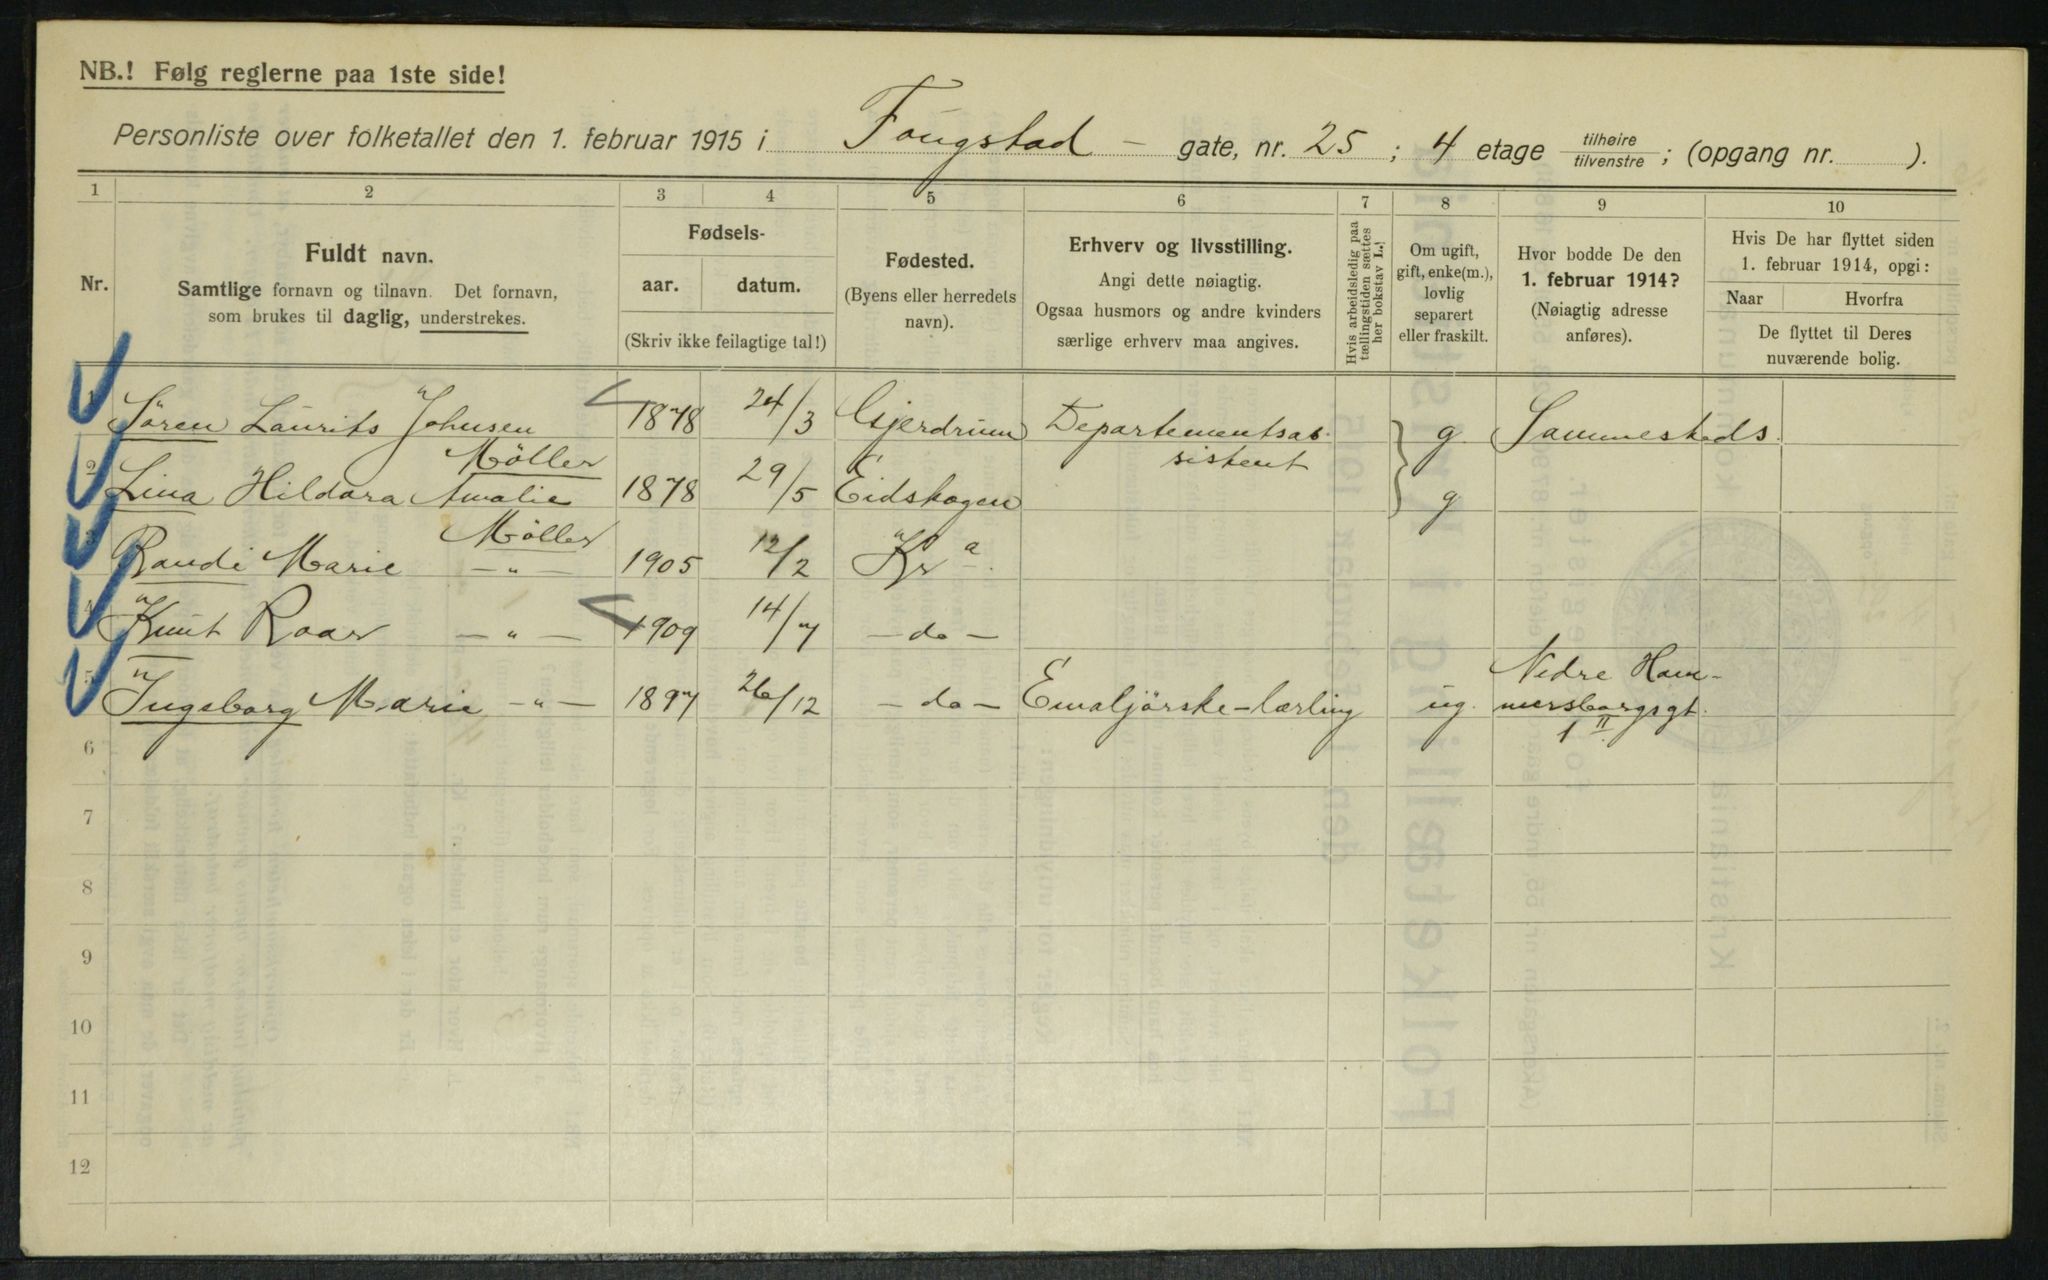 NB.! Følg reglerne paa 1ste side!
Personliste over folketallet den 1. februar 1915 i Fougstad - gate, nr. 25 ; 4 etage tilhøire / tilvenstre ; (opgang nr. ).
1 2 3 4 5 6 7 8 9 10
Nr.
Fuldt navn.
Samtlige fornavn og tilnavn. Det fornavn,
som brukes til daglig, understrekes.
Fødsels-
aar. datum.
(Skriv ikke feilagtige tal!)
Fødested.
(Byens eller herredets
navn).
Erhverv og livsstilling.
Angi dette nøiagtig.
Ogsaa husmors og andre kvinders
særlige erhverv maa angives.
Hvis arbeidsledig paa
tællingstiden sættes
her bokstav L.!
Om ugift,
gift, enke(m.),
lovlig
separert
eller fraskilt.
Hvor bodde De den
1. februar 1914?
(Nøiagtig adresse
anføres).
Hvis De har flyttet siden
1. februar 1914, opgi:
Naar Hvorfra
De flyttet til Deres
nuværende bolig.
1 Sören Laurits Johnsen 1878 24/3 Gjerdrum Departementsas- g. Sammesteds.
Möller sistent
2 Lina Hildora Amalie 1878 29/5 Eidskogen g
Möller
3 Randi Marie — " — 1905 12/2 Kra.
4 Knut Roar — " — 1909 14/7 — do —
5 Ingeborg Marie — " — 1897 26/12 — do — Emaljörske-lærling ug. Nedre Ham-
mersborgsgt.
1 II
6
7
8
9
10
11
12